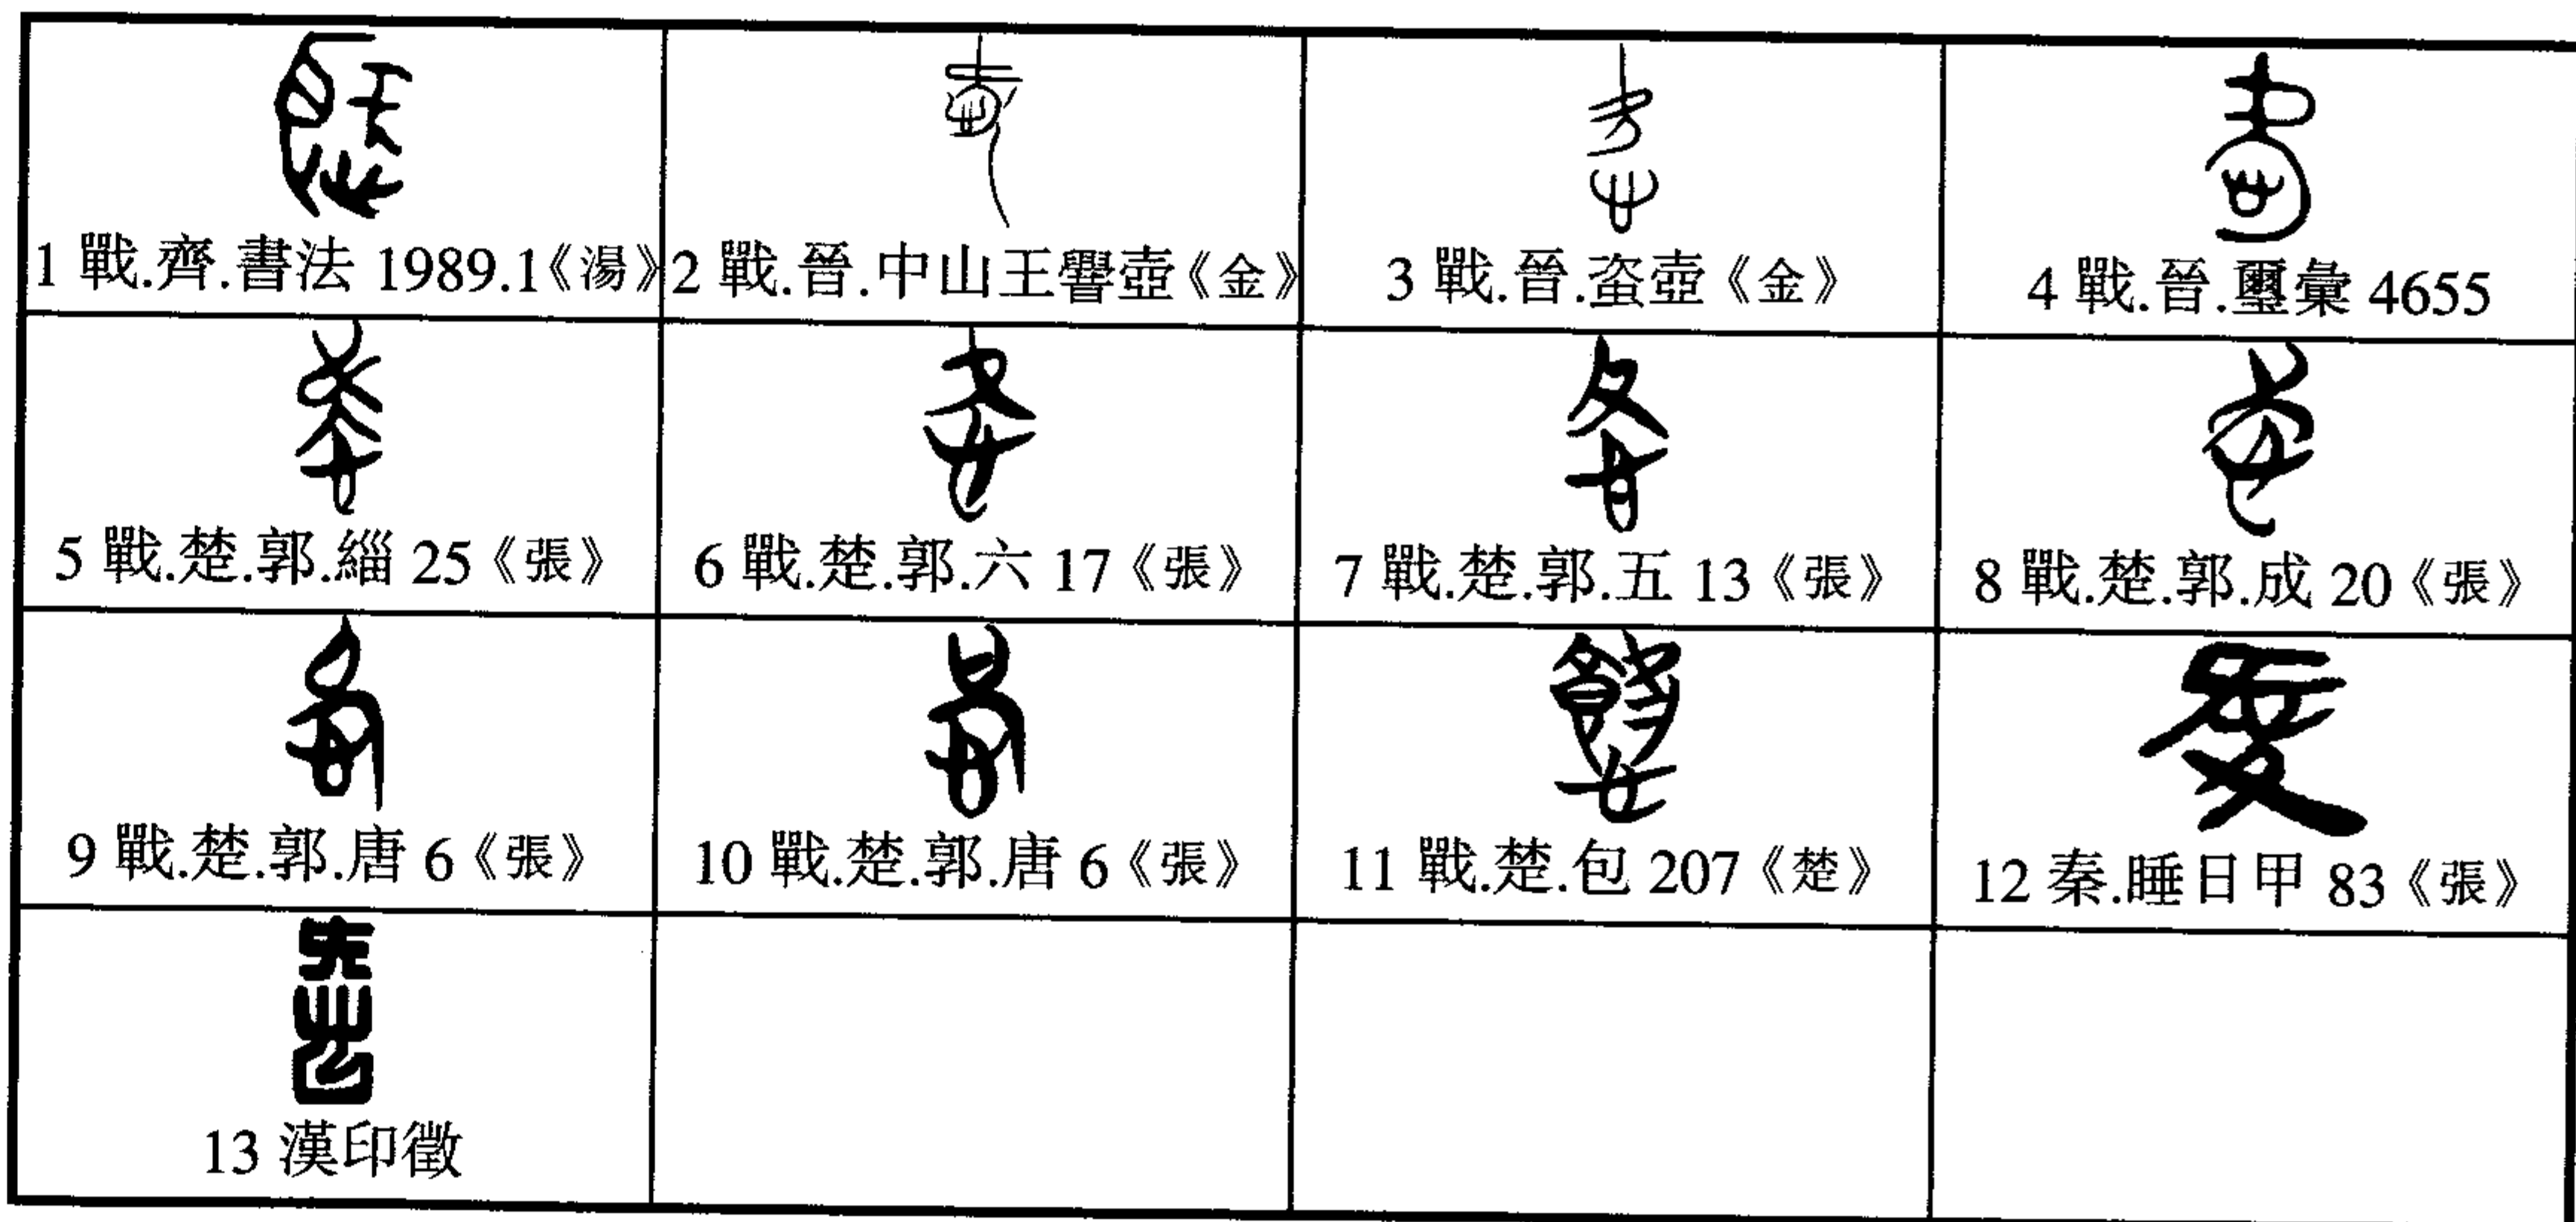 1 戰.齊.書法 1989.1《湯》
2 戰.晉.中山王譽壺《金》
3 戰.晉.䗐壺《金》
4 戰.晉.璽彙 4655
5 戰.楚.郭.緇 25《張》
6 戰.楚.郭.六 17《張》
7 戰.楚.郭.五 13《張》
8 戰.楚.郭.成 20《張》
9 戰.楚.郭.唐 6《張》
10 戰.楚.郭.唐 6《張》
11 戰.楚.包 207《楚》
12 秦.睡日甲 83《張》
13 漢印徵